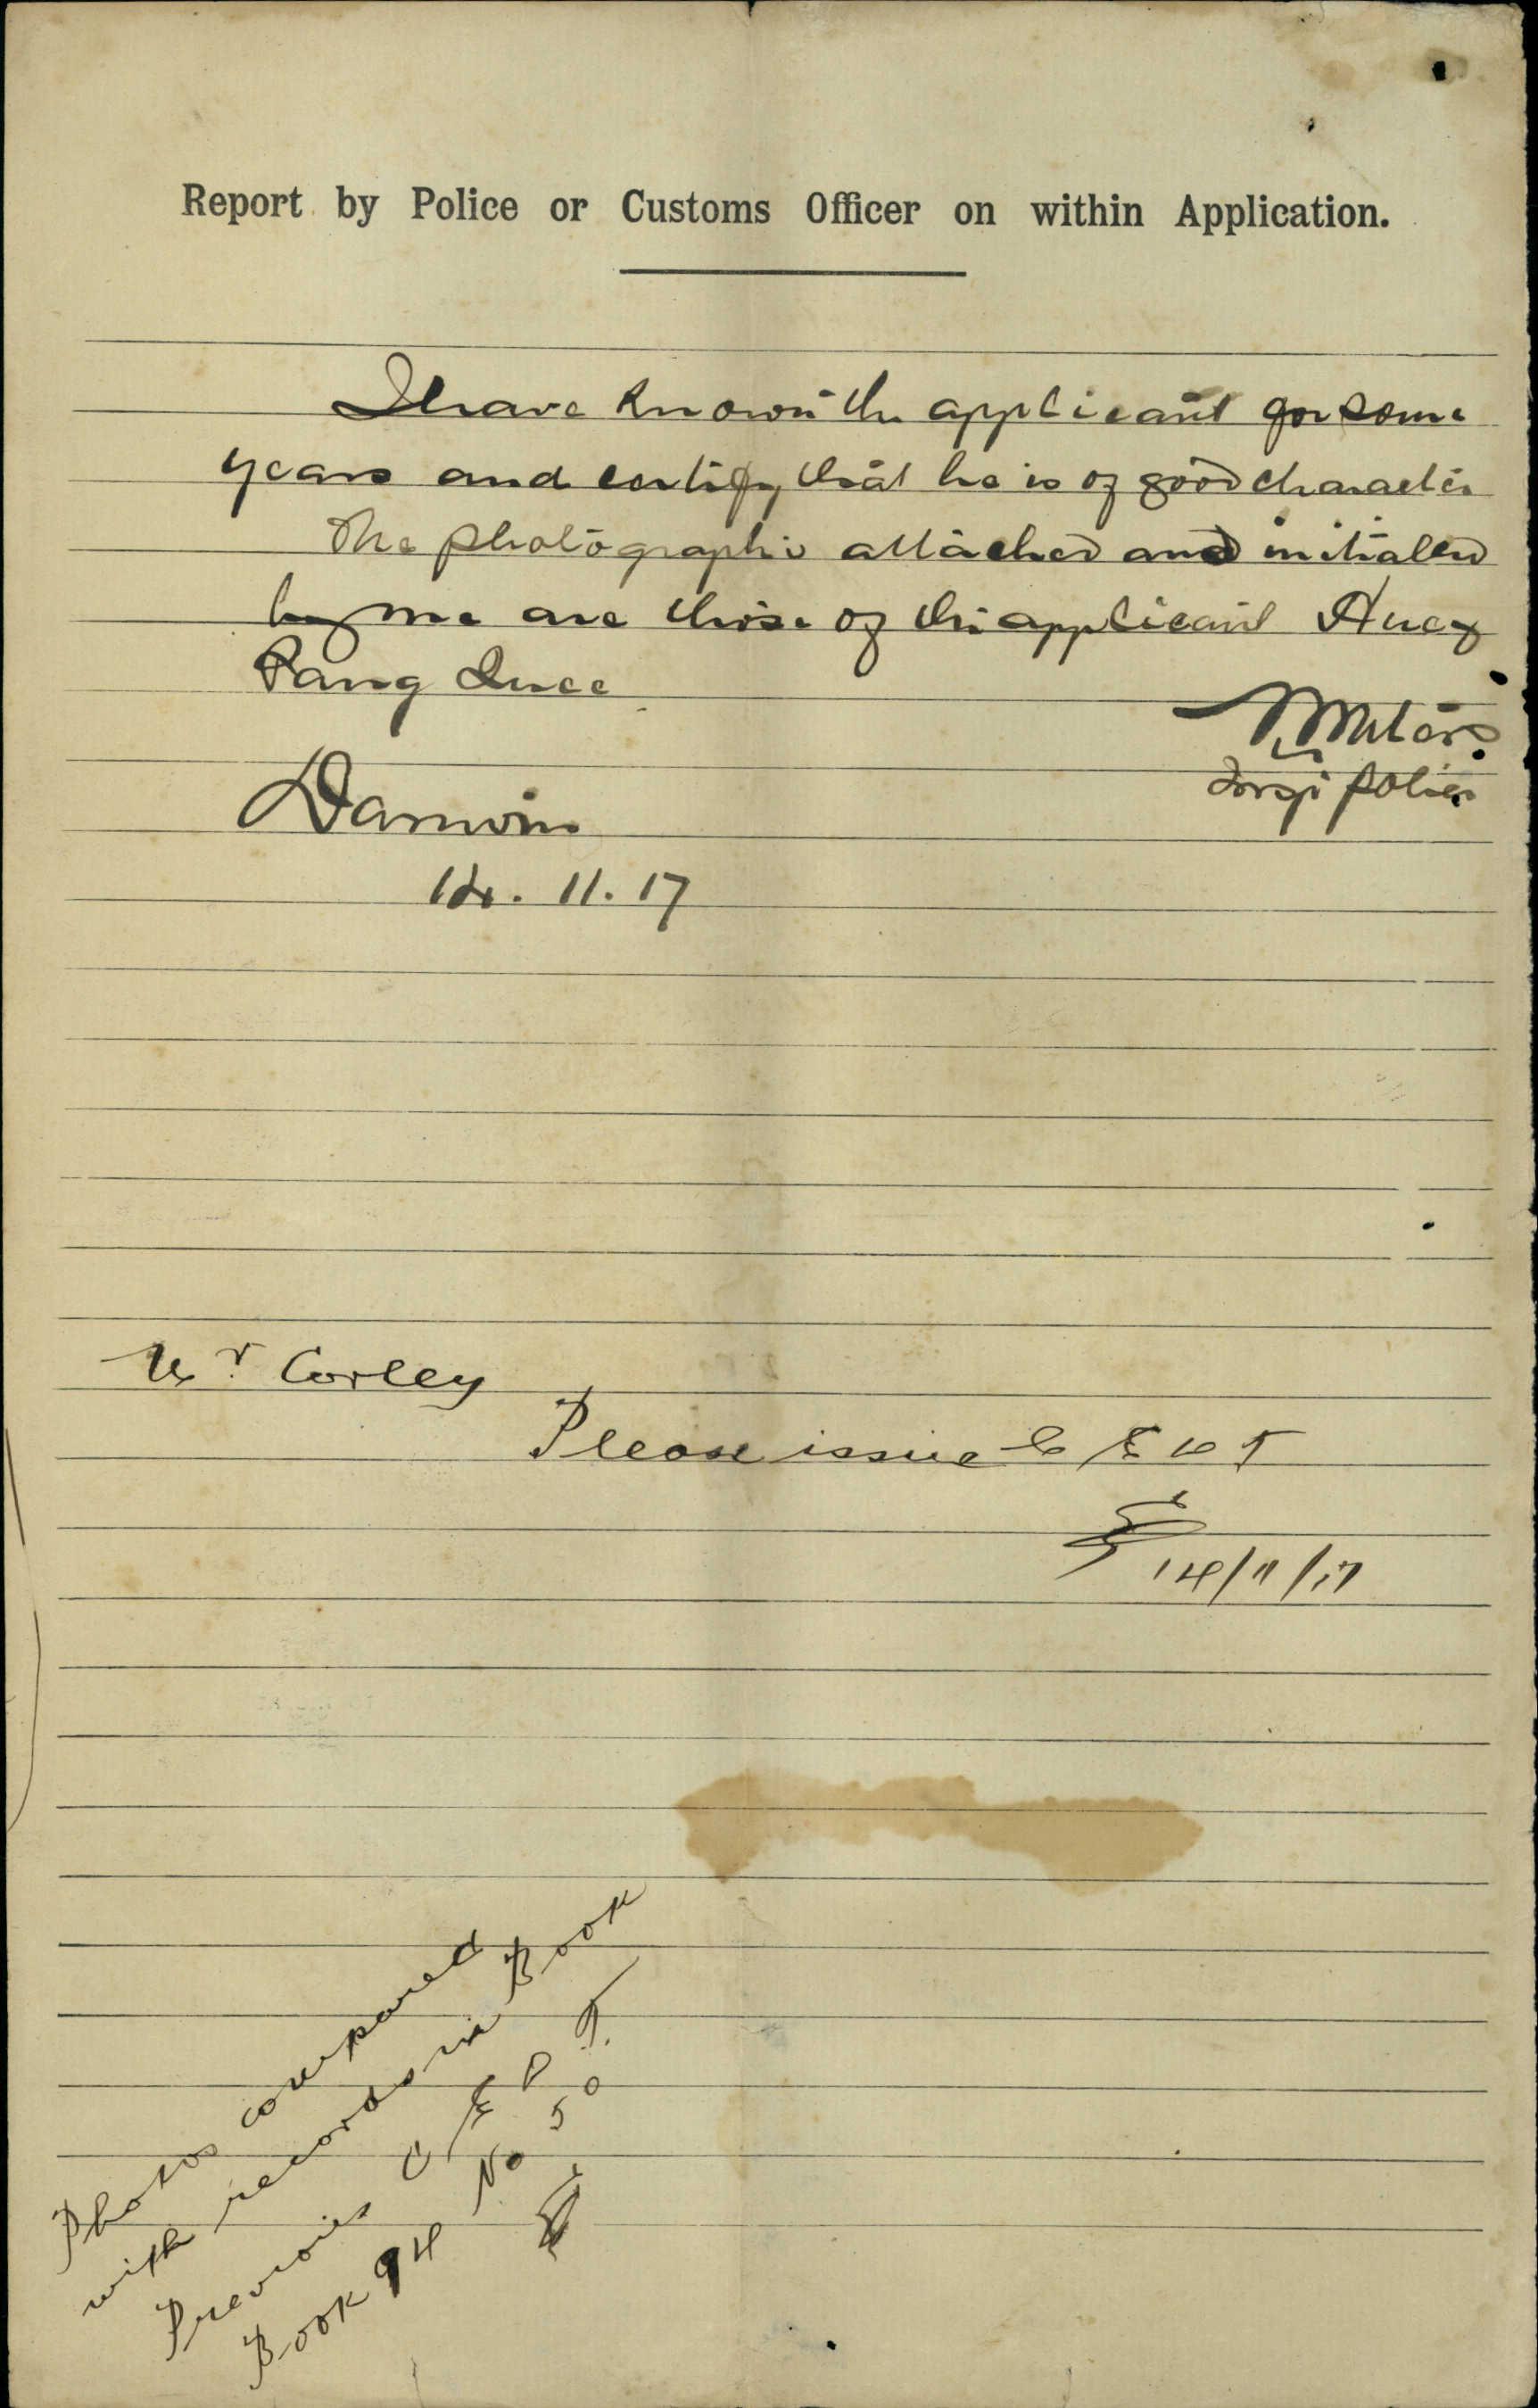 Report by Police or Customs Officer on within Application.
I have known the applicant for some
years and certify that he is of good character
The photographs attached and initialed
by me are those of the applicant
Pang Quee
Waters
Insp Police
Darwin
14. 11. 17
Mr Corley
Please issue C E D T
14/11/17
Photos compared
with records in Book
Previous C E D T.
Book 94 No 50